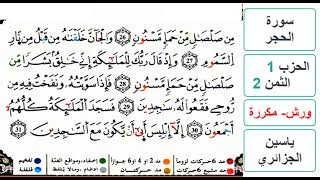 مِن صَلْصَٰلٍ مِّنْ حَمَإٍ مَّسْنُونٍ 26 وَالْجَآنَّ خَلَقْنَٰهُ مِن قَبْلُ مِن نَّارِ
السَّمُومِ 27 وَإِذْ قَالَ رَبُّكَ لِلْمَلَٰٓئِكَةِ إِنِّي خَٰلِقٌ بَشَرًا مِّن
صَلْصَٰلٍ مِّنْ حَمَإٍ مَّسْنُونٍ 28 فَإِذَا سَوَّيْتُهُۥ وَنَفَخْتُ فِيهِ مِن
رُّوحِي فَقَعُوا لَهُۥ سَٰجِدِينَ 29 فَسَجَدَ الْمَلَٰٓئِكَةُ كُلُّهُمُۥٓ
أَجْمَعُونَ 30 إِلَّآ إِبْلِيسَ أَبَىٰٓ أَنْ يَّكُونَ مَعَ السَّٰجِدِينَ 31
مد 6 حركات لزوما مد 2 أو 4 أو 6 جوازا إخفاء، ومواقع الغنة تفخيم
مد مشبع 6 حركات مد حركتان إدغام، وما لا يلفظ قلقلة
سورة
الحجر
الحزب 1
الثمن 2
ورش- مكررة
ياسين
الجزائري